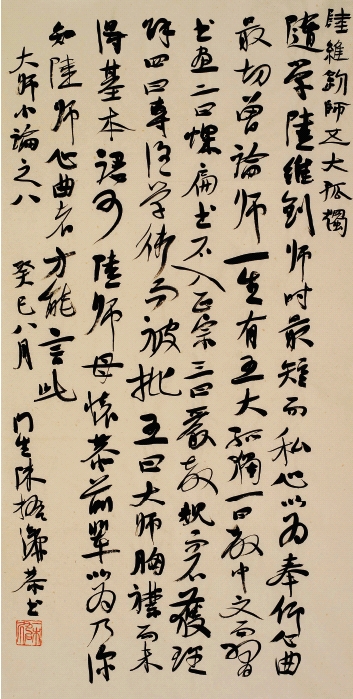 陸維釗師五大孤獨
隨學陸維釗師時最短而私心以為奉仰心曲
最切曾論師一生有五大孤獨一曰教中文而習
书画二曰躁扁书不入正宗三曰嚴教親而不獲理
解四曰專注学術而被批五曰大師胸襟而未
得基本認可陸師母懷恭前輩以為乃深
知陸師心曲者方能言此
大師小論之八 癸巳八月 门生陈振濂恭书